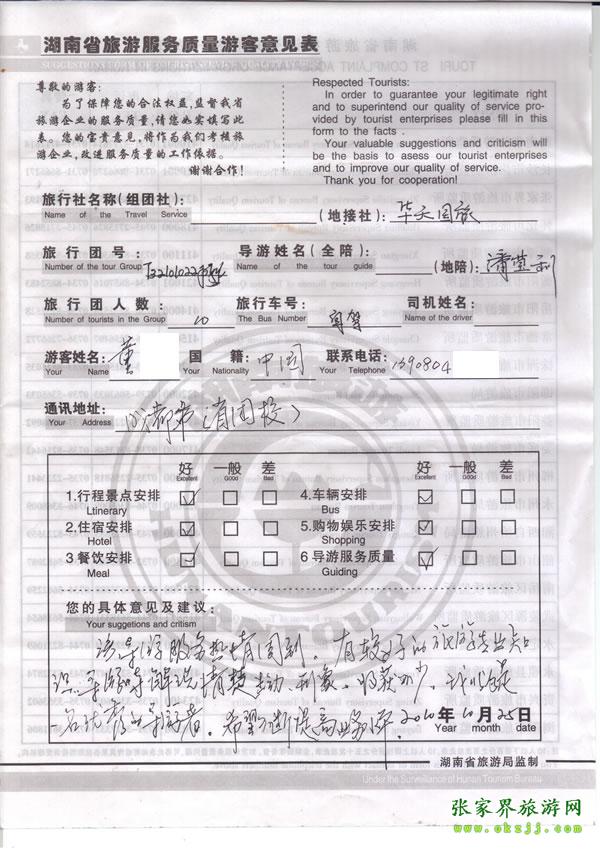 湖南省旅游服务质量游客意见表
尊敬的游客：
为了保障您的合法权益,监督我省
旅游企业的服务质量,请您如实填写此
表。您的宝贵意见,将作为我们考核旅
游企业,改进服务质量的工作依据。
谢谢合作!
Respected Tourists:
In order to guarantee your legitimate right
and to superintend our quality of service pro-
vided by tourist enterprises please fill in this
form to the facts .
Your valuable suggestions and criticism will
be the basis to asess our tourist enterprises
and to improve our quality of service.
Thank you for cooperation!
旅行社名称(组团社): (地接社): 华天国旅
Name of the Travel Service
旅行团号: 导游姓名(全陪): (地陪):
Number of the tour Group Name of the tour guide
旅行团人数: 10 旅行车号: 司机姓名:
Number of tourists in the Group The Bus Number Name of the driver
游客姓名: 董 国籍: 中国 联系电话: 1390804
Your Name Your Nationality Your Telephone
通讯地址: 成都市
Your Address
好 一般 差 好 一般 差
Excellent Good Bad Excellent Good Bad
1.行程景点安排 4.车辆安排
Ltinerary Bus
2.住宿安排 5.购物娱乐安排
Hotel Shopping
3 餐饮安排 6 导游服务质量
Meal Guiding
您的具体意见及建议:
Your suggetions and critism
该导游服务热情周到，有较好的旅游专业知
识，导游讲解清楚生动、形象，收获不少，
一名优秀的导游者。希望不断提高业务水平。2010年10月25日
Year month date
湖南省旅游局监制
Under the Surveillance of Hunan Tourism Bureau
张家界旅游网
www.okzjj.com